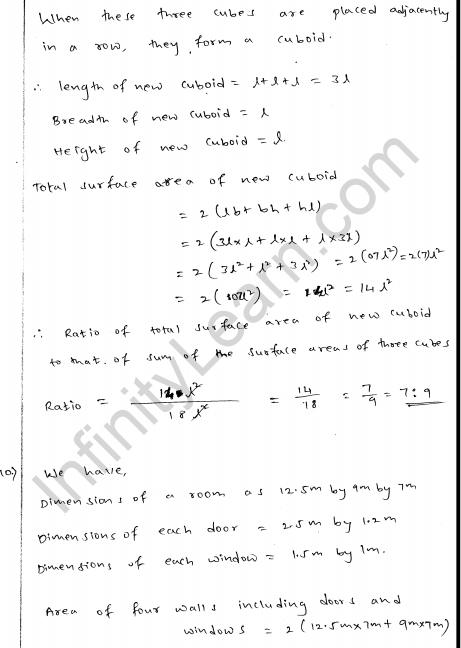 When these three cubes are placed adjacently
in a row, they form a cuboid.
∴ length of new cuboid = l+l+l = 3l
Breadth of new cuboid = l
Height of new cuboid = l.
Total surface area of new cuboid
= 2(lb+bh+hl)
= 2(3l×l+l×l+l×3l)
= 2(3l²+l²+3l²) = 2(07l²)=2(7)l²
= 2( l²) = l² = 14l²
∴ Ratio of total surface area of new cuboid
to that. of sum of the surface areas of three cubes
Ratio = 14l²/18l² = 14/18 = 7/9 = 7:9
10.) We have,
Dimensions of a room as 12.5m by 9m by 7m
Dimensions of each door = 2.5m by 1.2m
Dimensions of each window = 1.5m by 1m.
Area of four walls including doors and
windows = 2(12.5m×7m+9m×7m)
InfinityLearn.com